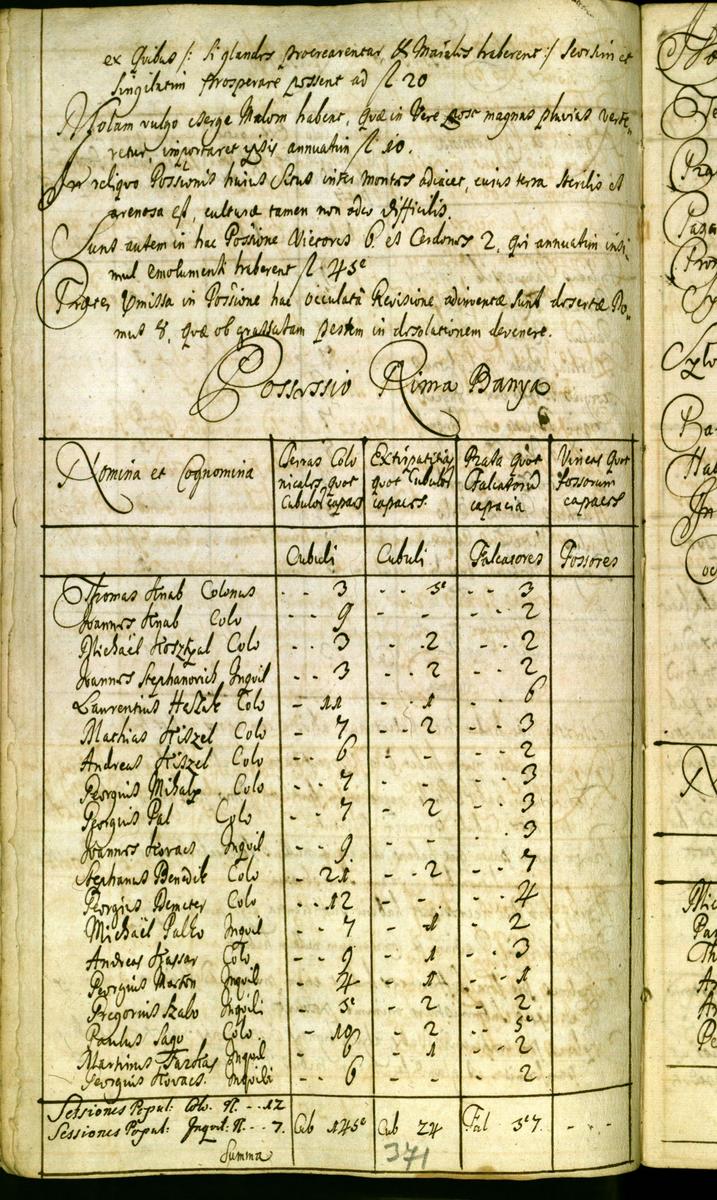 ex Quibus /: si glandes procrearentur, & Maiales haberent :/ seorsim et
singillatim prosperare possent ad fl 20
Molam vulgo Cserge Malom habent, quæ in Vere post magnas pluvias verte-
retur, importaret ipsis annuatim fl 10.
In reliquo Possionis huius Situs inter montes adiacet, cuius terra sterilis et
arenosa est, culturæ tamen non adeo difficilis.
Sunt autem in hac Possione Victores 6. et Cerdones 2, qui annuatim insi-
mul emolumenti haberent fl 45
Præter præmissa in Possione hac occulata Revisione adinventæ sunt desertæ Do-
mus 8, quæ ob grassatam pestem in desolationem devenere.
Possessio Rima Banya
Nomina et Cognomina
Terras Colonicales quot Cubulos capaces
Extirpatitias quot Cubulos capaces.
Prata quot Falcatorum capacia
Vineas Quot Fossorum capaces
Cubuli Cubuli Falcatores Fossores
Thomas Knab Colonus - - 3 - - 5 - - 3
Joannes Knab Colo - - 9 - - - - 2
Michaël Kosztyal Colo - - 3 - - 2 - - 2
Joannes Stephanovich Inquil - - 3 - - 2 - - 2
Laurentius Haszik Colo - 11 - - 1 - - 6
Mathias Kiszel Colo - 7 - - 2 - - 3
Andreas Kiszel Colo - 6 - - - - 2
Georgius Mihaly Colo - - 7 - - - - 3
Georgius Pal Colo - - 7 - - 2 - - 3
Joannes Kovacs Inquil - - 9 - - - - 3
Stephanus Benedik Colo - 21 - - 2 - - 7
Georgius Demeter Colo - - 12 - - - - 4
Michaël Palko Inquil - - 7 - 1 - - 2
Andreas Kassar Colo - - 9 - 1 - - 3
Georgius Marton Inquil - - 4 - 1 - - 1
Gregorius Szabo Inquili - - 5 - 2 - - 2
Paulus Sago Colo - 10 - 2 - - 5
Martinus Farkas Inquil - 6 - 1 - - 2
Georgius Kovacs Inquili - - 6 - - - - 2
Sessiones Popul: Colo. N. - - 12
Sessiones Popul: Inquil: N. - - 7.
Summa Cub 145 Cub 24 Fal 57 - - -
371